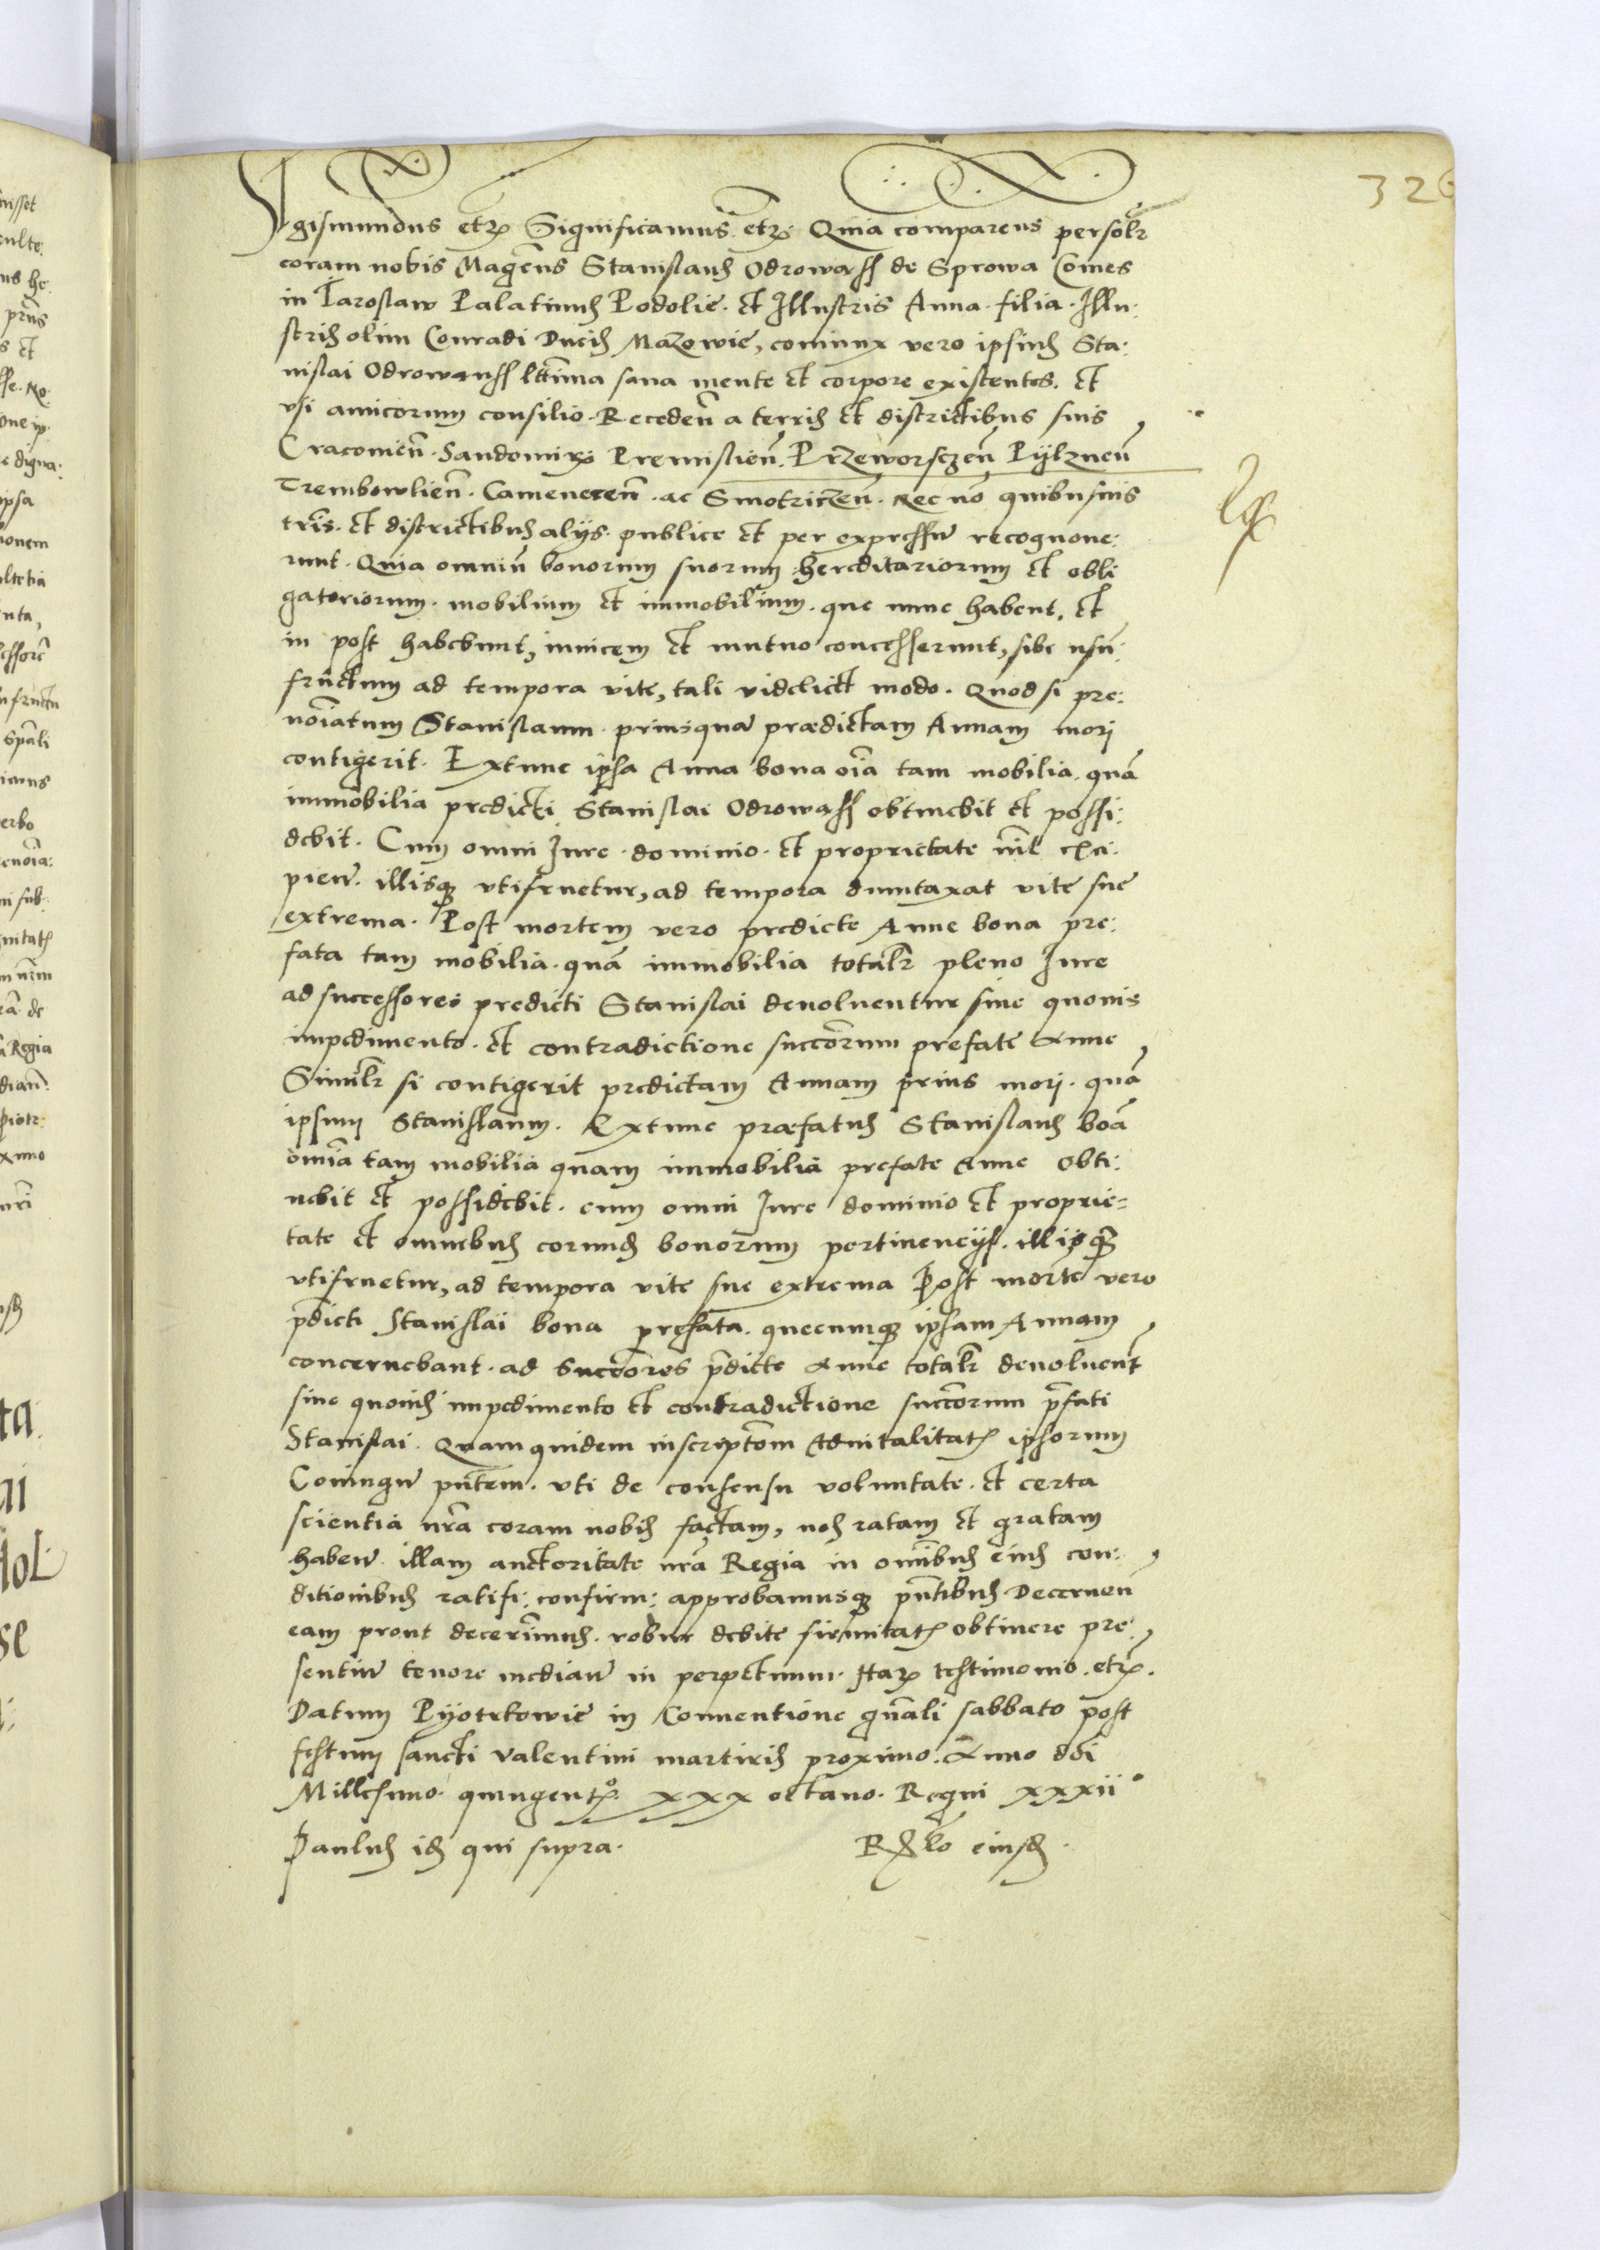 326
Sigismundus etc Significamus etc Quia comparens persolr
coram nobis Magcus Stanislaus Odrowass de Sprowa Comes
in Iaroslaw Palatinus Podolie. et Illustris Anna. filia. Illu:
stris olim Conradi Ducis Mazowie, coniunx vero ipsius Sta:
nislai Odrowanss lttima sana mente et corpore existentes. et
vsi amicorum consilio. Receden a terris et districtibus suis
Cracouien. Sandomirs Premislien. Przeworsczen Pylznen
Trembowlien. Camenecen. ac Smotriczen. Nec no quibusuis
tris. et districtibus alijs. publice et per expressu recognoue:
runt. Quia omniu bonorum suorum hereditariorum et obli
gatoriorum. mobilium et immobilium. que nunc habent. et
in post habebunt, inuicem et mutuo concesserunt, sibi usu:
fructum ad tempora vite, tali videlict modo. Quod si pre:
noiatum Stanislaum. priusqua prædictam Annam mori
contigerit. Extunc ipsa Anna bona oia tam mobilia. qua
immobilia predicti Stanislai Odrowass obtinebit et possi:
debit. Cum omni Iure. dominio. et proprietate nil exci:
pien. illisque vtifruetur, ad tempora duntaxat vite sue
extrema. Post mortem vero predicte Anne bona pre:
fata tam mobilia. qua immobilia totalr pleno Iure
ad successores predicti Stanislai deuoluentur sine quouis
impedimento. et contradictione succorum prefate Anne
Similr si contigerit predictam Annam prius mori. qua
ipsum Stanislaum. Extunc præfatus Stanislaus boa
omia tam mobilia quam immobilia prefate Anne obti:
nebit et possidebit. cum omni Iure dominio et proprie=
tate et omnibus eorund bonorum pertinencijs. illisque
vtifruetur, ad tempora vite sue extrema Post morte vero
pdicti Stanislai bona prefata. quecumque ipsam Annam
concernebant. ad Succores pdicte Anne totalr deuoluent
sine quouis impedimento et contradictione succorum pfati
Stanislai. Quamquidem inscriptom Aduitalitats ipsorum
Coniugu pntem. vti de consensu voluntate. et certa
scientia nra coram nobis factam, nos ratam et gratam
haben. illam auctoritate nra Regia in omibus eius con:
ditionibus ratifi: confirm: approbamusque pntibus Decernen
eam prout decernimus. robur debite firmitats obtinere pre:
sentiu tenore median in perpetuum. Harz testimonio. etc.
Datum Pyotrkowie in Conuentione gnali sabbato post
festum sancti Valentini martiris proximo. Anno dni
Millesimo. quingento. xxx octauo. Regni xxxii°
Paulus id qui supra. Rlo eiusd.